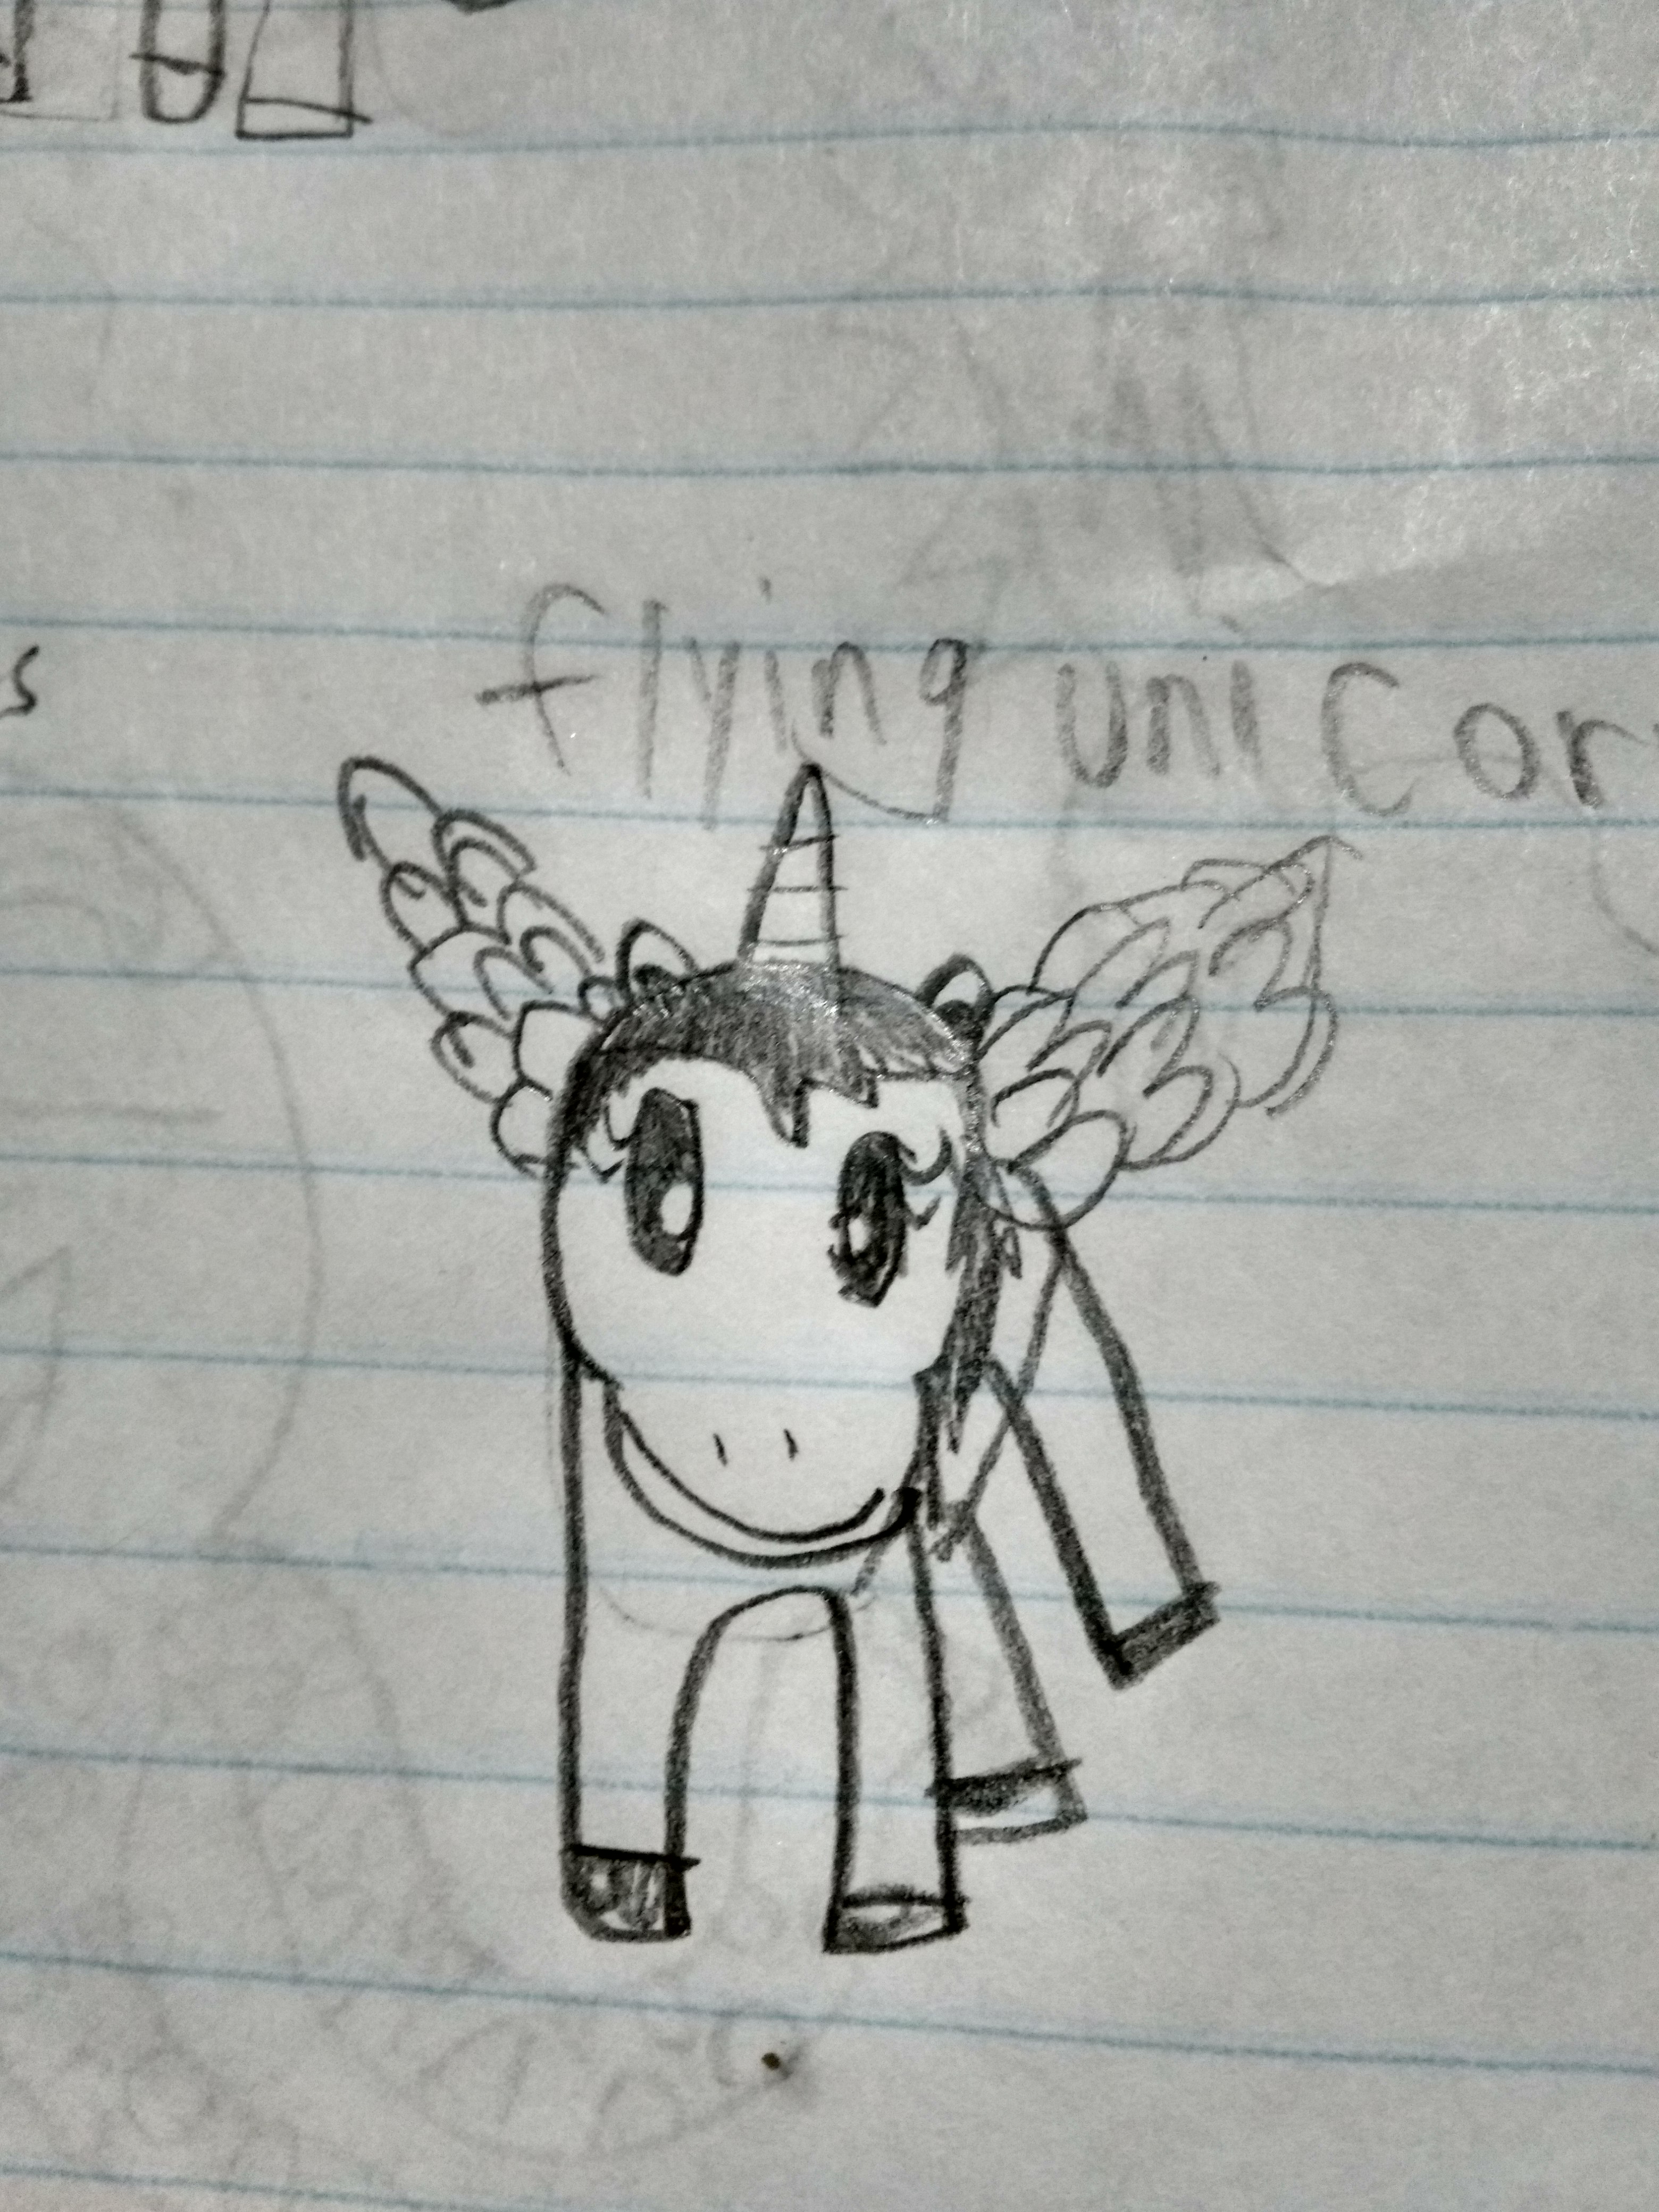 s
flying unicorn